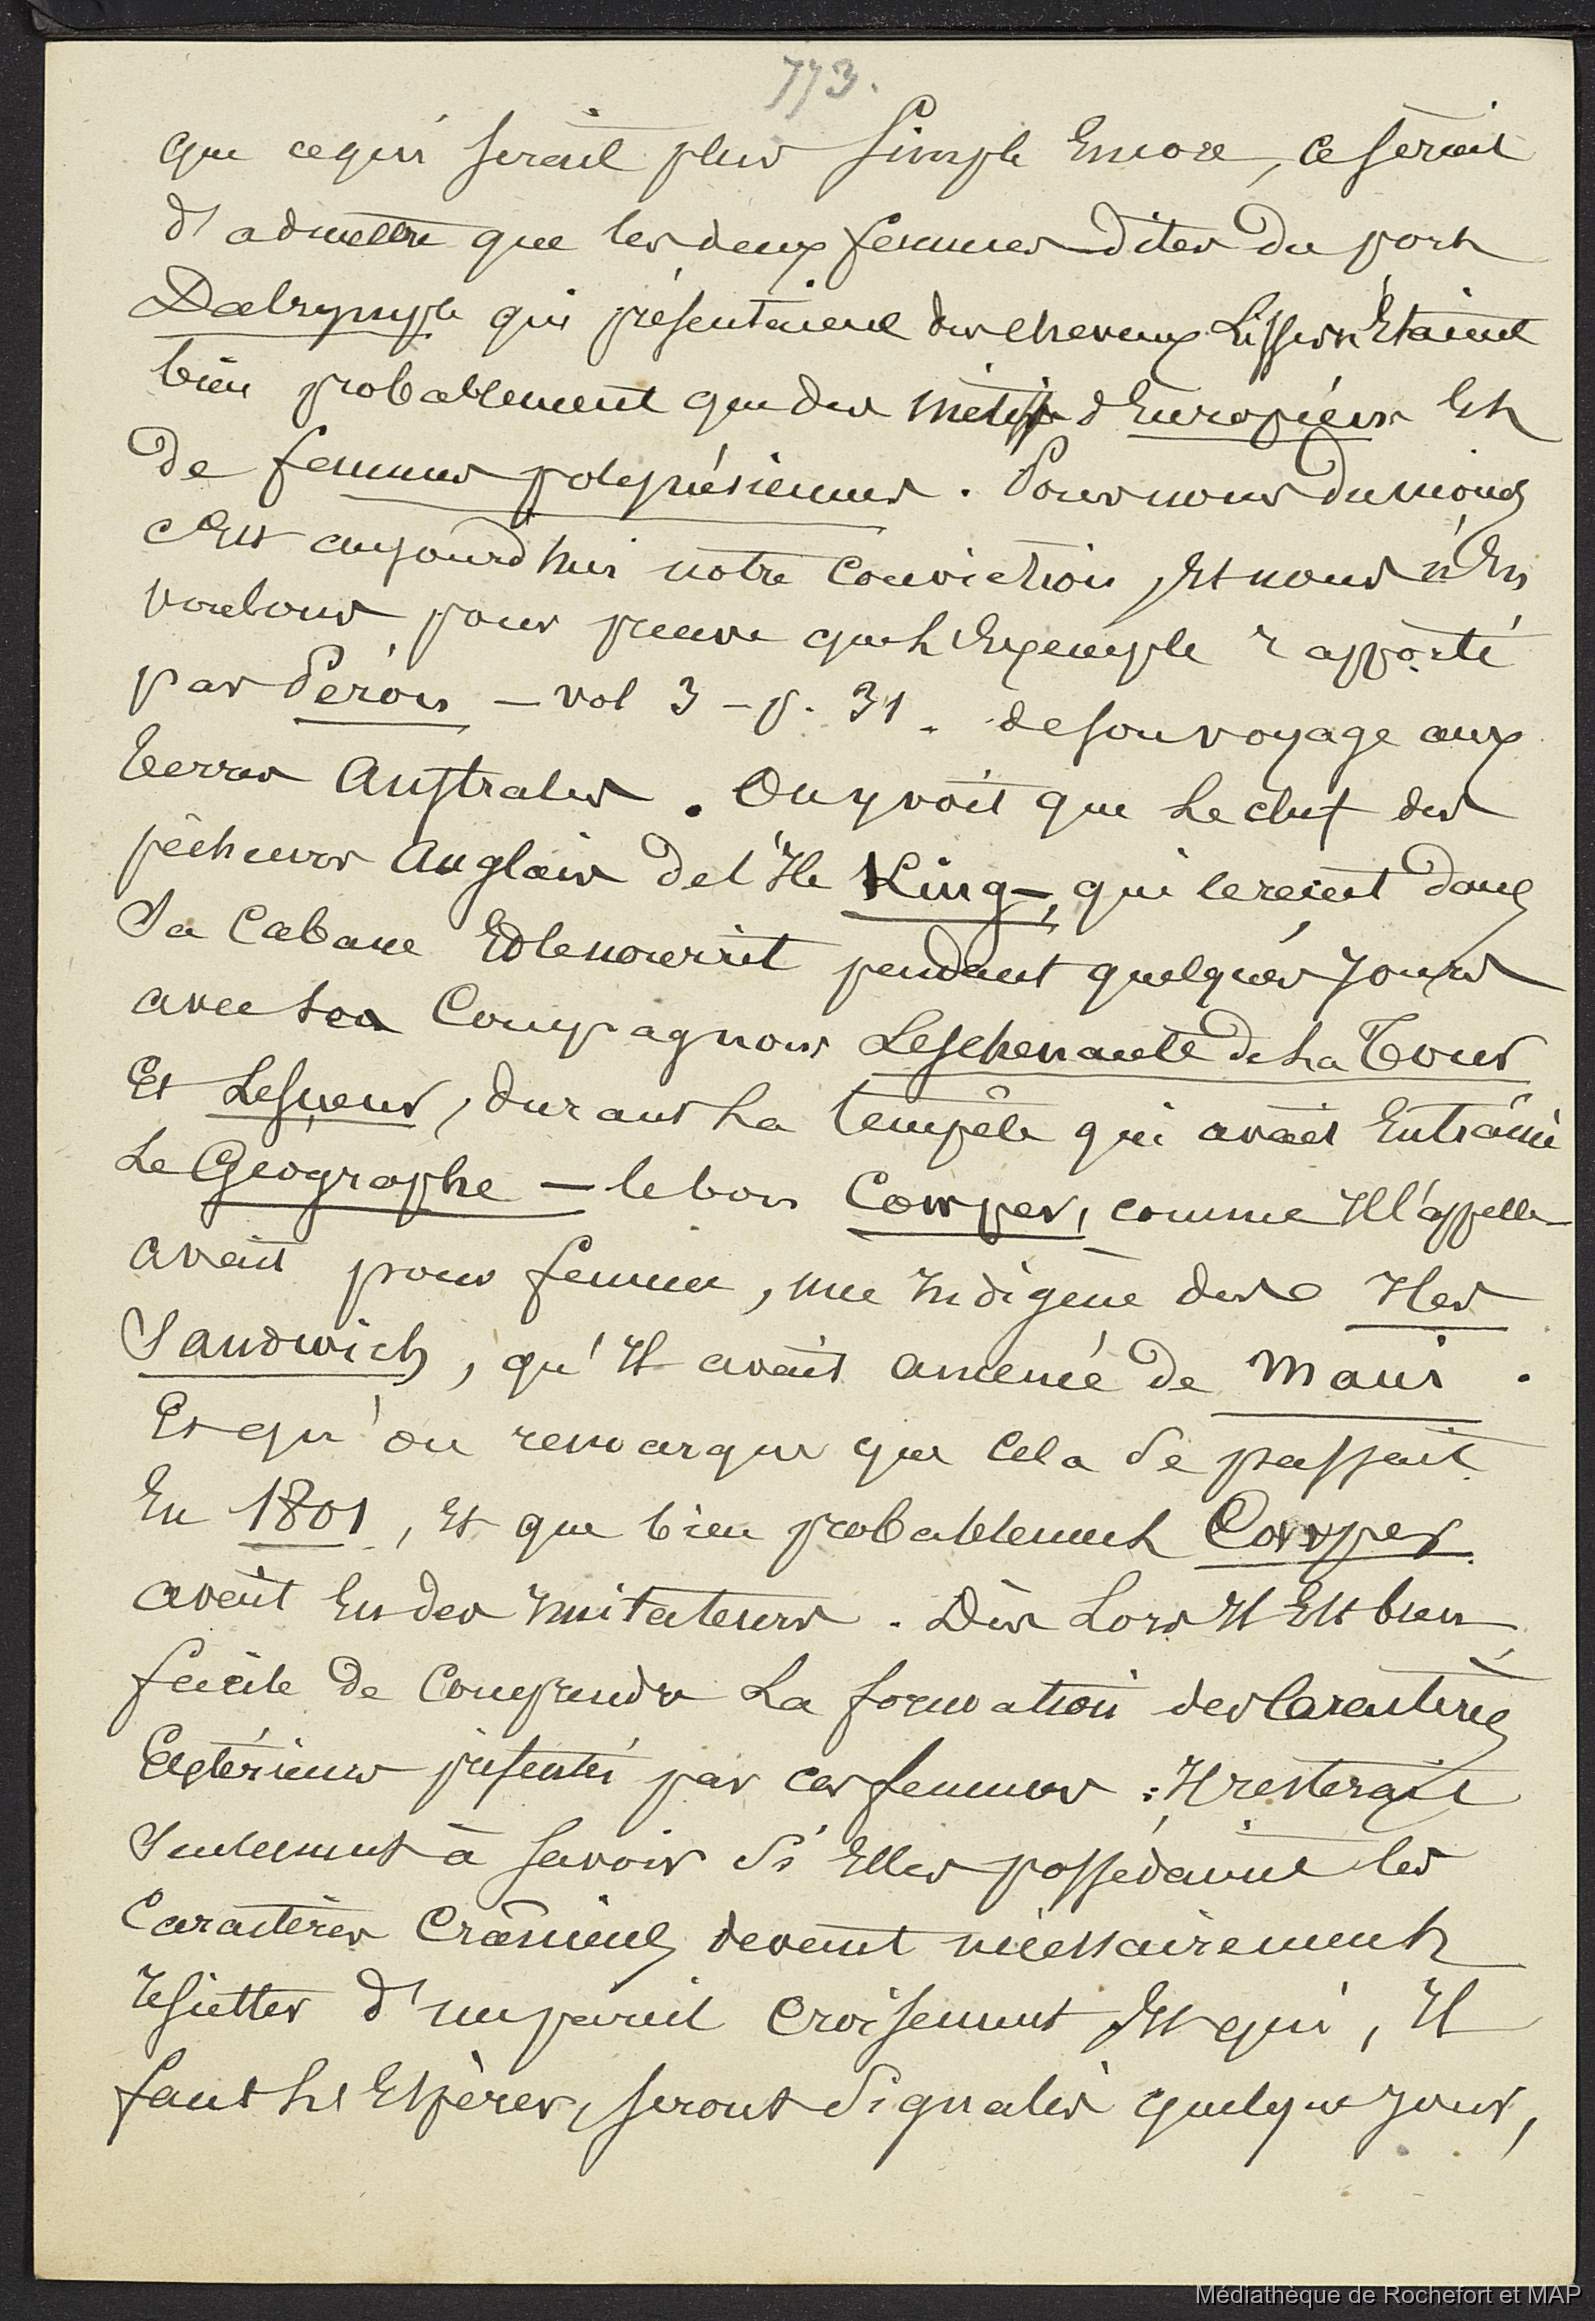 773.
que ce qui serait plus simple Encore, ce serait
d'admettre que les deux femmes dites du port
Dalrymple qui présentaient des cheveux lisses n'étaient
bien probablement que des métis d'Européens Et
de femmes polynésiennes. Pour nous du moins
c'Est aujourd'hui notre Conviction, Et nous n'En
voulons pour preuve que l'Exemple rapporté
par Péron - vol 3 - p. 31. de son voyage aux
terres Australes. On y voit que Le chef des
pêcheurs Anglais de l'Ile King -, qui le reçut dans
Sa Cabane Et le nourrit pendant quelques Jours
avec ses Compagnons Leschenault de La Tour
Et Lesueur, durant La tempête qui avait Entraîné
Le Géographe - le bon Cowper, comme Il l'appelle
avait pour femme, une Indigène des Iles
Sandwich, qu'Il avait amenée de Maui.
Et qu'on remarque que Cela Se passait
En 1801, Et que bien probablement Cowper
avait Eu des Imitateurs. Dès Lors Il Est bien
facile de Comprendre La formation des Caractères
Extérieurs présentés par ces femmes : Il resterait
Seulement à Savoir Si Elles possédaient les
Caractères Crâniens devant nécessairement
résulter d'un pareil Croisement Et qui, Il
faut L'Espérer, seront Signalés quelque jour,
Médiathèque de Rochefort et MAP